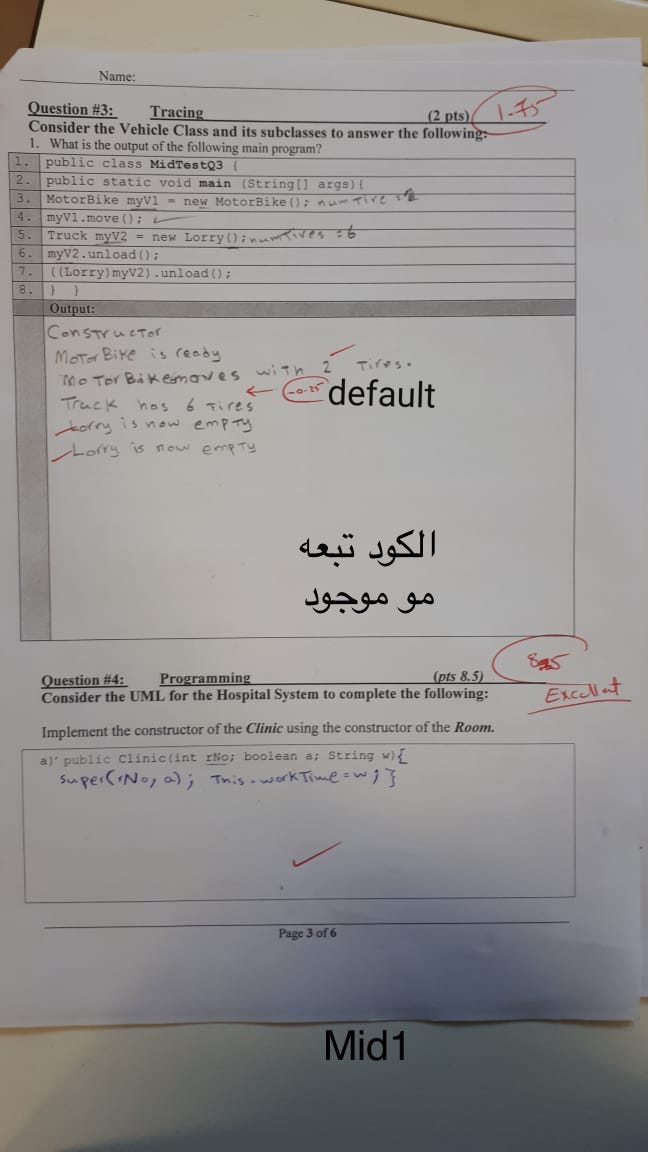 Name:
Question #3: Tracing (2 pts) 1.75
Consider the Vehicle Class and its subclasses to answer the following:
1. What is the output of the following main program?
1. public class MidTestQ3 {
2. public static void main (String[] args){
3. MotorBike myV1 = new MotorBike(); numTire = 2
4. myV1.move();
5. Truck myV2 = new Lorry(); numTires = 6
6. myV2.unload();
7. ((Lorry)myV2).unload();
8. } }
Output:
Constructor
MotorBike is ready
MotorBike moves with 2 Tires.
Truck has 6 Tires -0.25 default
Lorry is now empty
Lorry is now empty
الكود تبعه
مو موجود
Question #4: Programming (pts 8.5) 8.5
Consider the UML for the Hospital System to complete the following: Excellent
Implement the constructor of the Clinic using the constructor of the Room.
a) public Clinic(int rNo; boolean a; String w){
super(rNo, a); This.workTime = w; }
Page 3 of 6
Mid1